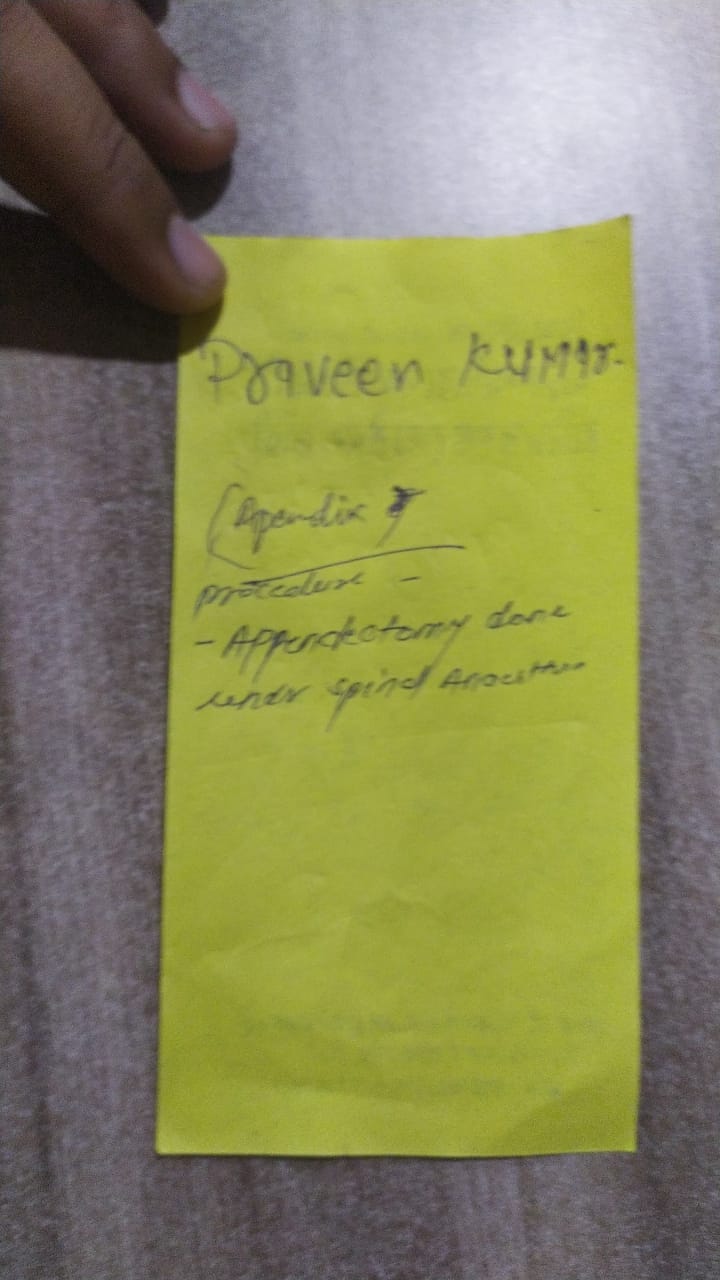 Praveen Kumar
(Apendix
procedure -
- Appendectomy done
under spinal Anaesthesia